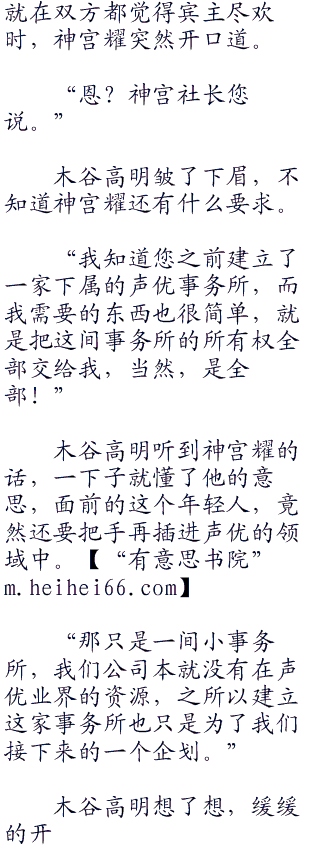 就在双方都觉得宾主尽欢
时，神宫耀突然开口道。
“恩？神宫社长您
说。”
木谷高明皱了下眉，不
知道神宫耀还有什么要求。
“我知道您之前建立了
一家下属的声优事务所，而
我需要的东西也很简单，就
是把这间事务所的所有权全
部交给我，当然，是全
部！”
木谷高明听到神宫耀的
话，一下子就懂了他的意
思，面前的这个年轻人，竟
然还要把手再插进声优的领
域中。【“有意思书院”
m.heihei66.com】
“那只是一间小事务
所，我们公司本就没有在声
优业界的资源，之所以建立
这家事务所也只是为了我们
接下来的一个企划。”
木谷高明想了想，缓缓
的开